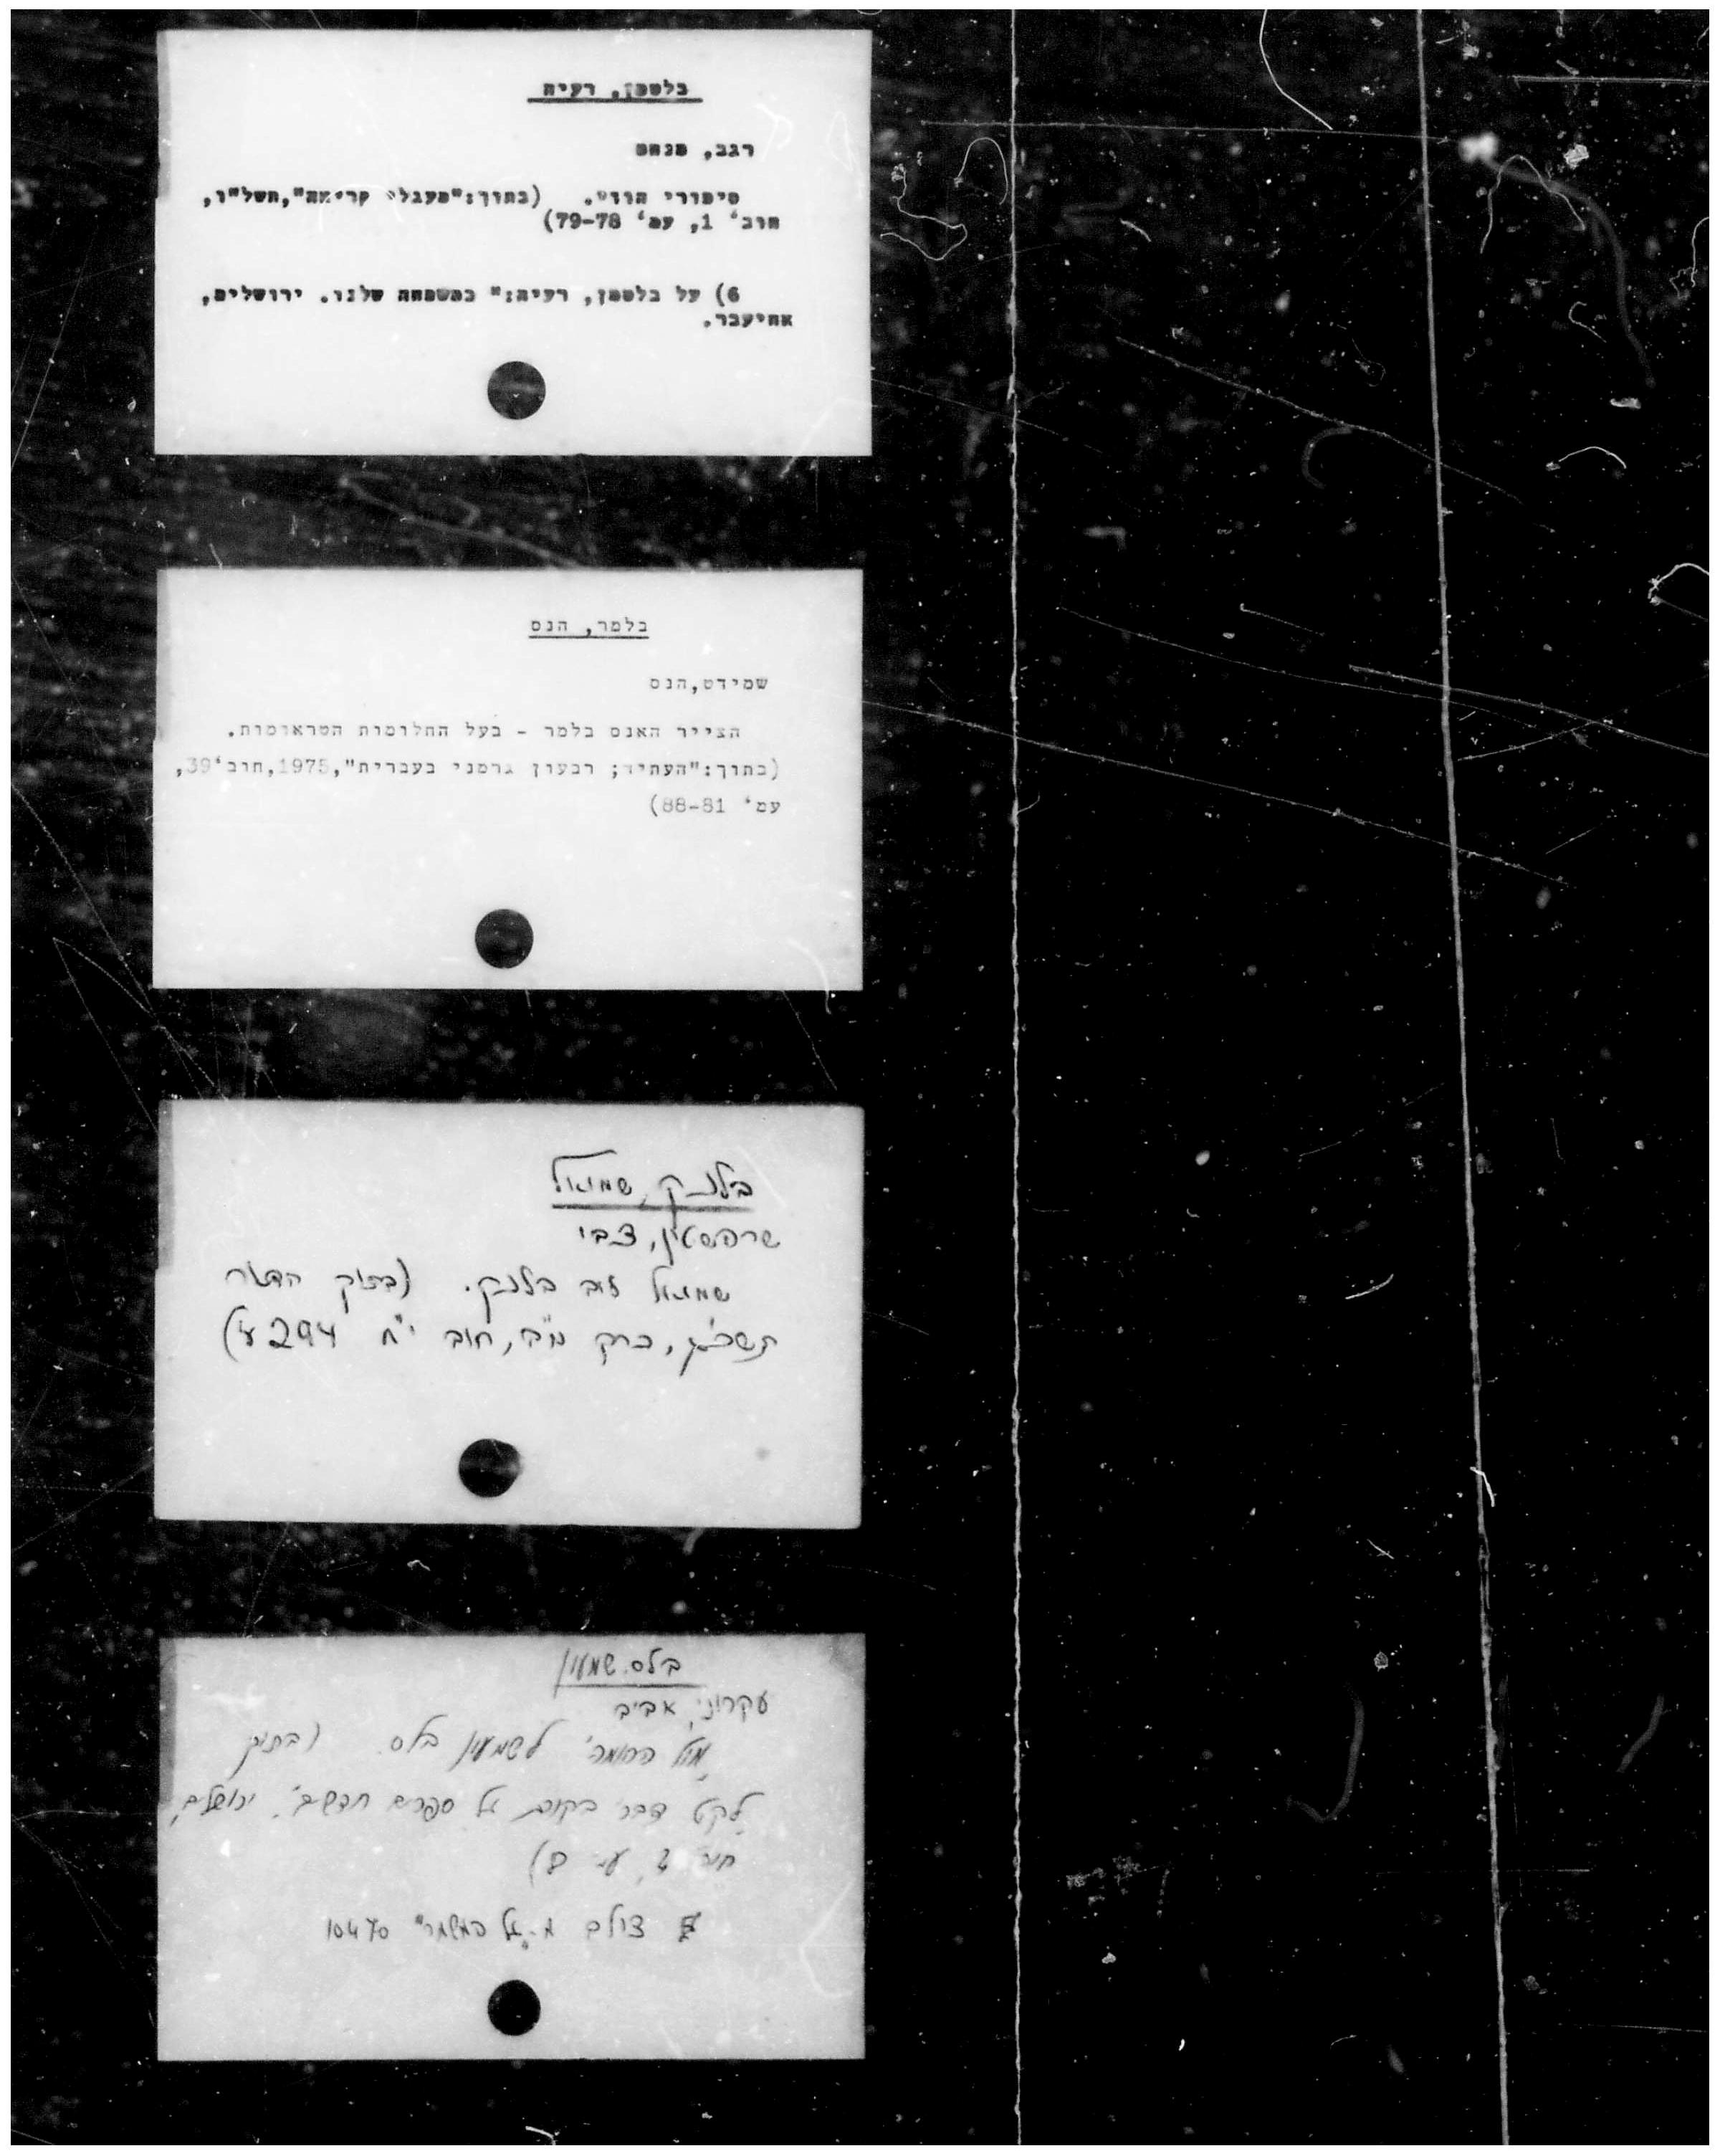 בלטמן, רעיה
רגב, מנחם
סיפורי הווי. (בתוך:"מעגלי קריאה",תשל"ו,
חוב' 1, עמ' 79-78)
6) על בלטמן, רעיה:" במשפחה שלנו. ירושלים,
אחיעבר.
בלמר, הנס
שמידט,הנס
הצייר האנס בלמר - בעל החלומות הטראומות.
(בתוך:"העתיד; רבעון גרמני בעברית",1975,חוב'39,
עמ' 88-81)
בלנק, שמואל
שרפשטין, צבי
שמואל בלנק. (בתוך הדואר
תשכ"ג, כרך מ"ב, חוב י"ח 294 ע')
בלס, שמעון
עקרוני, אביב
"מול החומה" לשמעון בלס. (בתוך
"לקט דברי בקורת על ספרים חדשים", ירושלים,
חוב' ע' 8)
צולם מ-"על המשמר" 10470